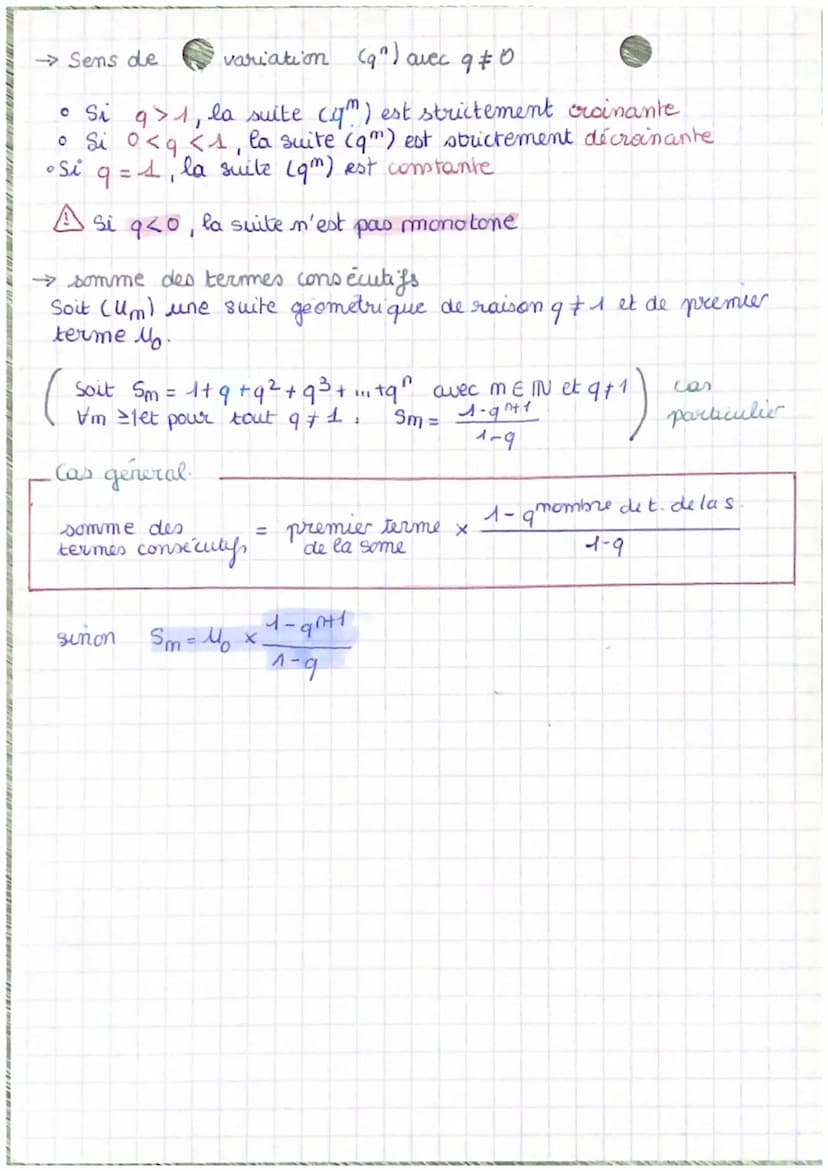 → Sens de variation (qⁿ) avec q ≠ 0
• Si q > 1, la suite (qⁿ) est strictement croissante
• Si 0 < q < 1, la suite (qⁿ) est strictement décroissante
• Si q = 1, la suite (qⁿ) est constante
⚠ Si q < 0, la suite n'est pas monotone
→ somme des termes consécutifs
Soit (Un) une suite géométrique de raison q ≠ 1 et de premier
terme U₀.
Soit Sn = 1 + q + q² + q³ + ... + qⁿ avec n ∈ ℕ et q ≠ 1 cas
∀n ≥ 1 et pour tout q ≠ 1, Sn = (1 - qⁿ⁺¹)/(1 - q) particulier
Cas général.
somme des termes consécutifs = premier terme de la some × (1 - q^nombre de t. de la s.)/(1 - q)
sinon Sn = U₀ × (1 - qⁿ⁺¹)/(1 - q)